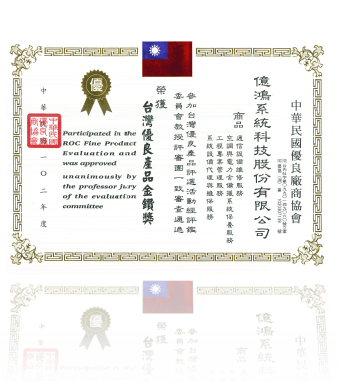 中華民國優良廠商協會
億鴻系統科技股份有限公司
商品
通信設備維修服務
空調與電力設備系統保養服務
工程專案管理服務
系統設備代理與維保服務
參加台灣優良產品評選活動經評鑑
委員會教授評審團一致審查通過
榮獲
台灣優良產品金鑽獎
優
Participated in the
ROC Fine Product
Evaluation and
was approved
unanimously by
the professor jury
of the evaluation
committee
中華民國一〇二年度